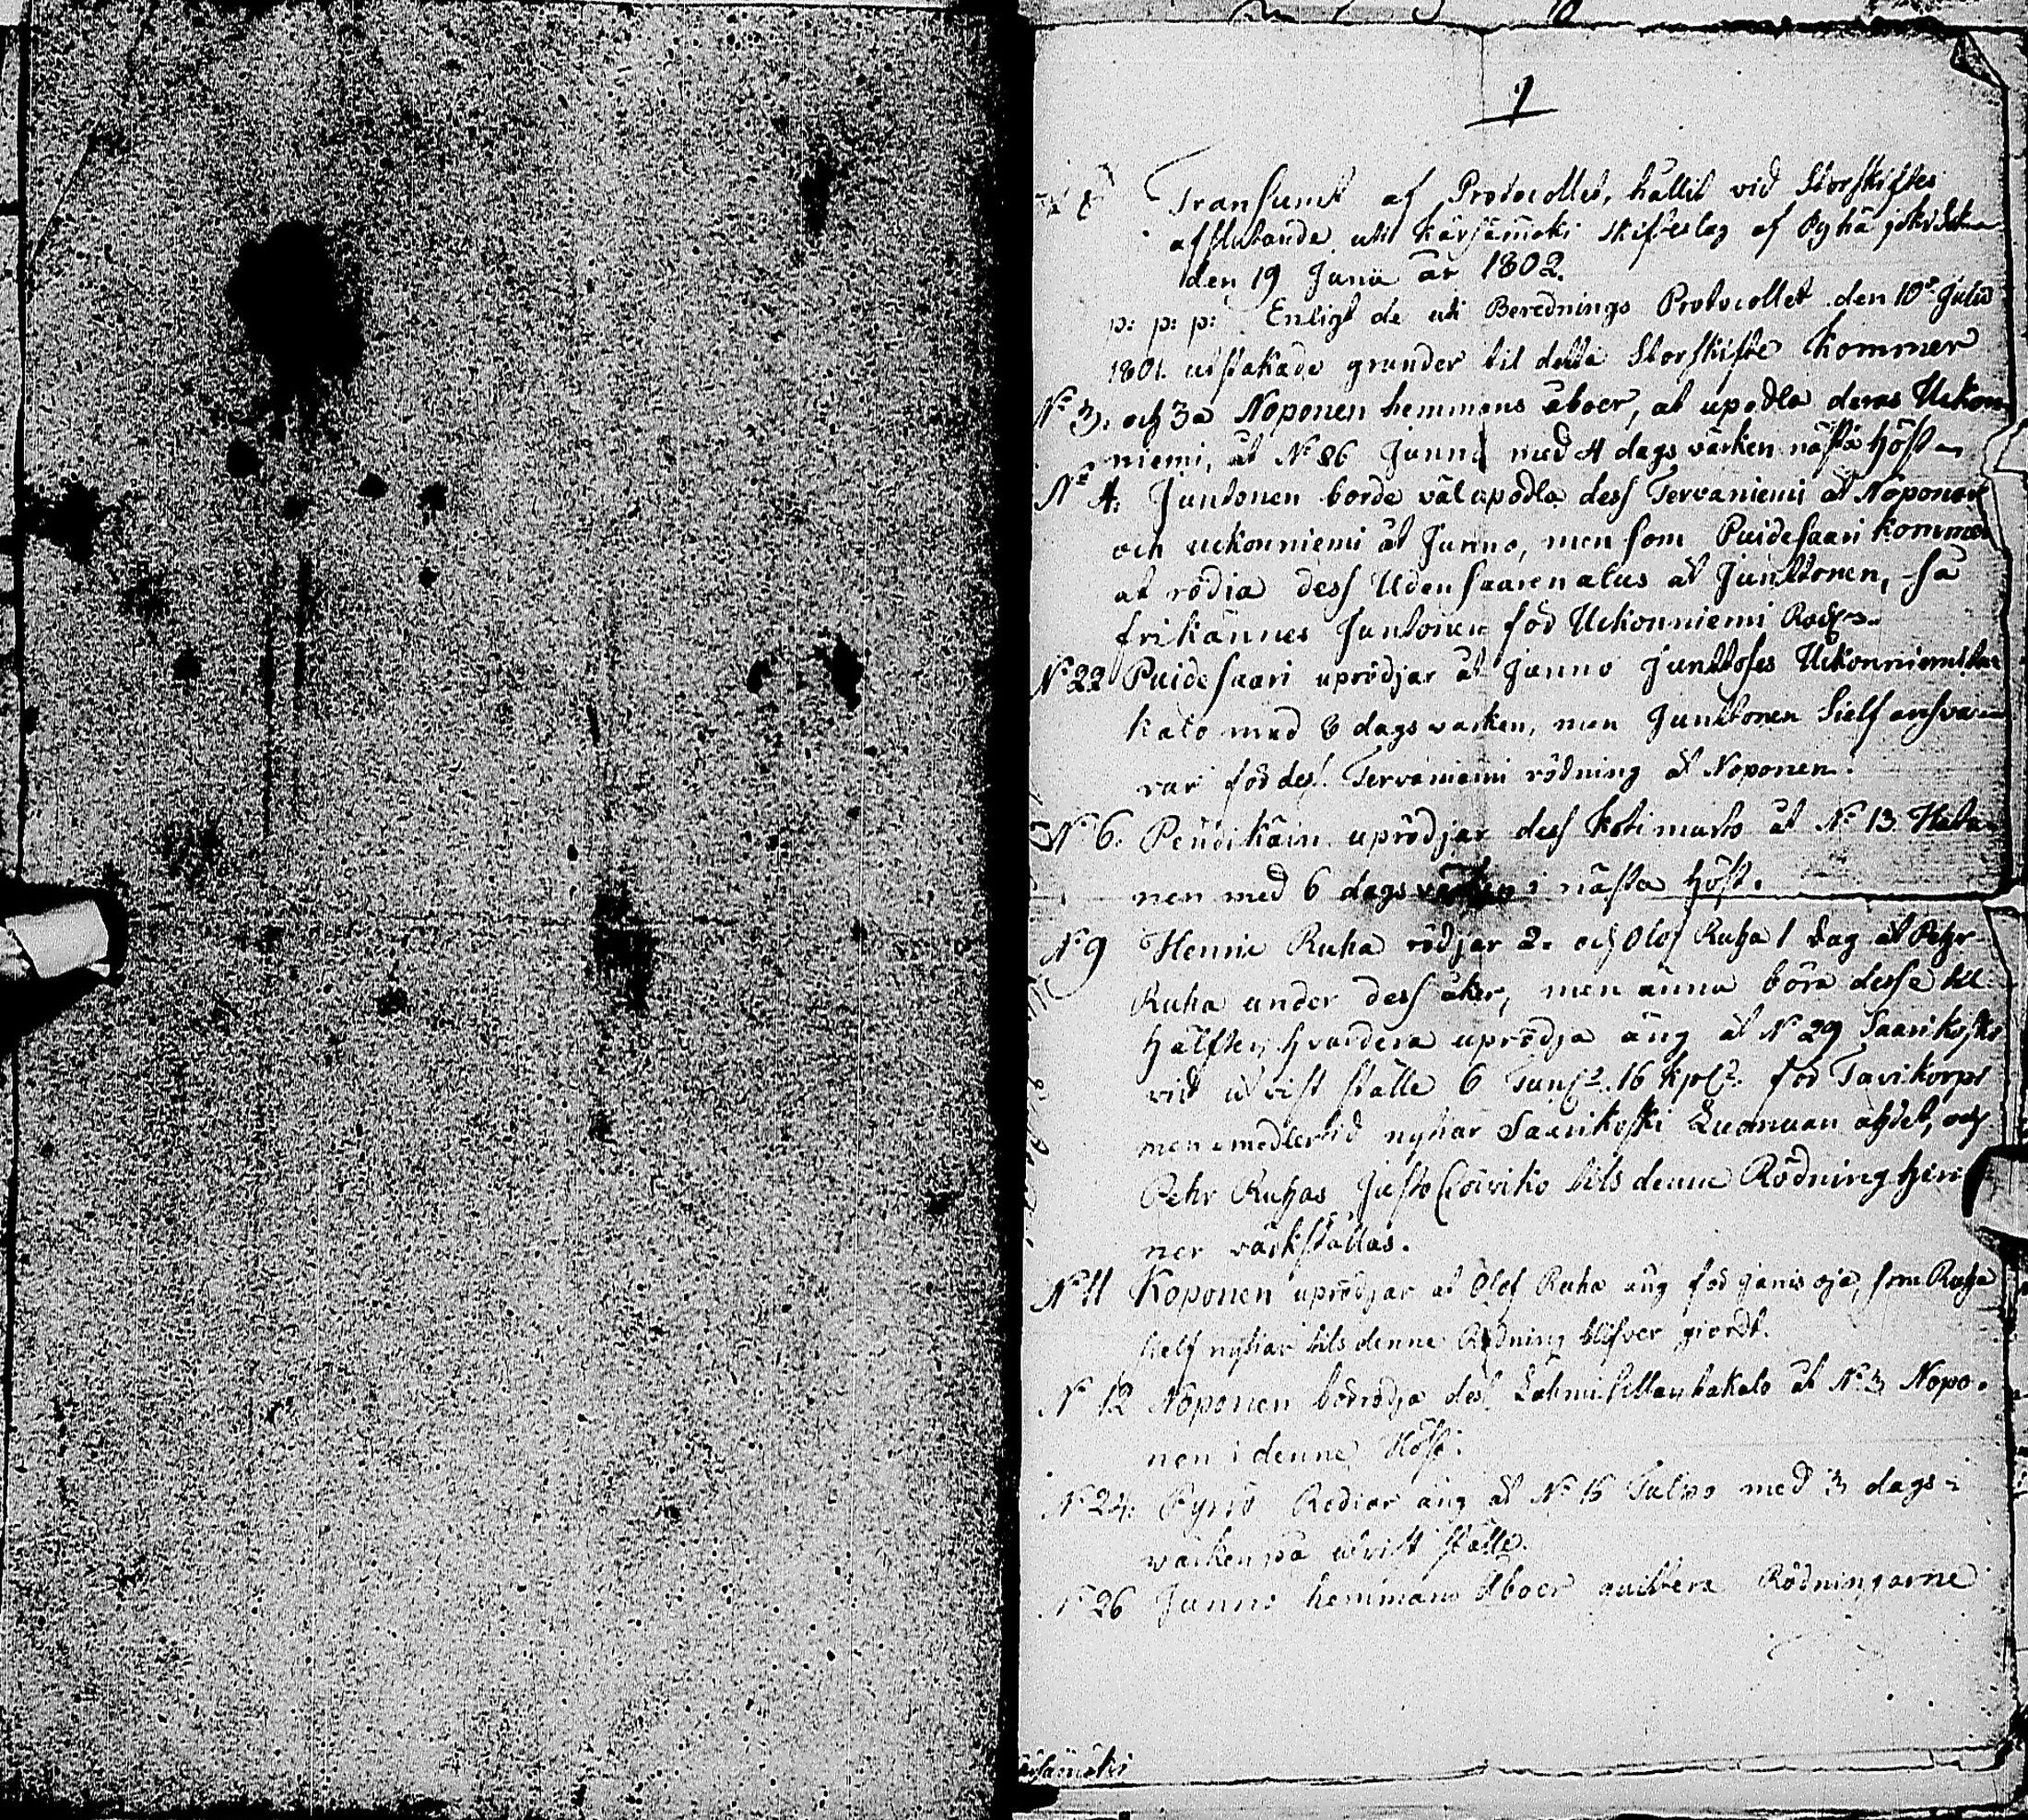 1
Transumt af Protocollet, hållit vid Storskiftes
afslutande uti Kärsämäki skifteslag af Pyhäjoki Sokn
den 19 Junii år 1802.
p: p: p: Enligt de uti Berednings Protocollet den 10de Julii
1801. utstakade grunder til detta Storskifte kommer
No 3. och 3a Noponen hemmans åboer, at upodla deras Uckon
niemi, åt No 26 Junno med 4 dagsvärken nästa höst
No 4. Juntonen borde väl upodla dess Tervaniemi åt Noponen
och uckonniemi åt Junno, men som Puidesaari kommer
at rödia dess Uden saaren alus åt Junttonen, så
frikännes Juntonen för Uckonniemi
No 22 Puidesaari uprödjar åt Junno Junttoses Uckonniemi
kalo med 3 dagsvärken, men Junttonen Sielf ansva
rar för dess Tervaniemi rödning åt Noponen.
No 6. Pendikäin uprödjar dess kotimurto åt No 13. Hata
nen med 6 dagsvärken i nästa höst.
No 9 Henric Ruha rödjar 2. och Olof Ruha 1 dag åt Pehr
Ruha under dess åker, men ännu böra desse til
hälften hvardera uprödja äng åt No 29 Saarikoski
vid utvist ställe 6 16 för Tavikorpi
men emedlertid nytiar Saarikoski Luonuan och
Pehr Ruhas tils denne Rödning hin
ner värkställas.
No 11 Koponen uprödjar åt Olof Ruha äng för Janis oja, som Ruha
sielf nytiar tils denne Rödning blifver giordt.
No 12 Noponen bör rödja dess åt No 3 Nopo
nen i denne Höst.
No 24. Pyrrö Rödiar äng åt No 15 med 3 dags
värken på utvist ställe.
No 26 Junno hemmans Åboer quittera Rödningarne